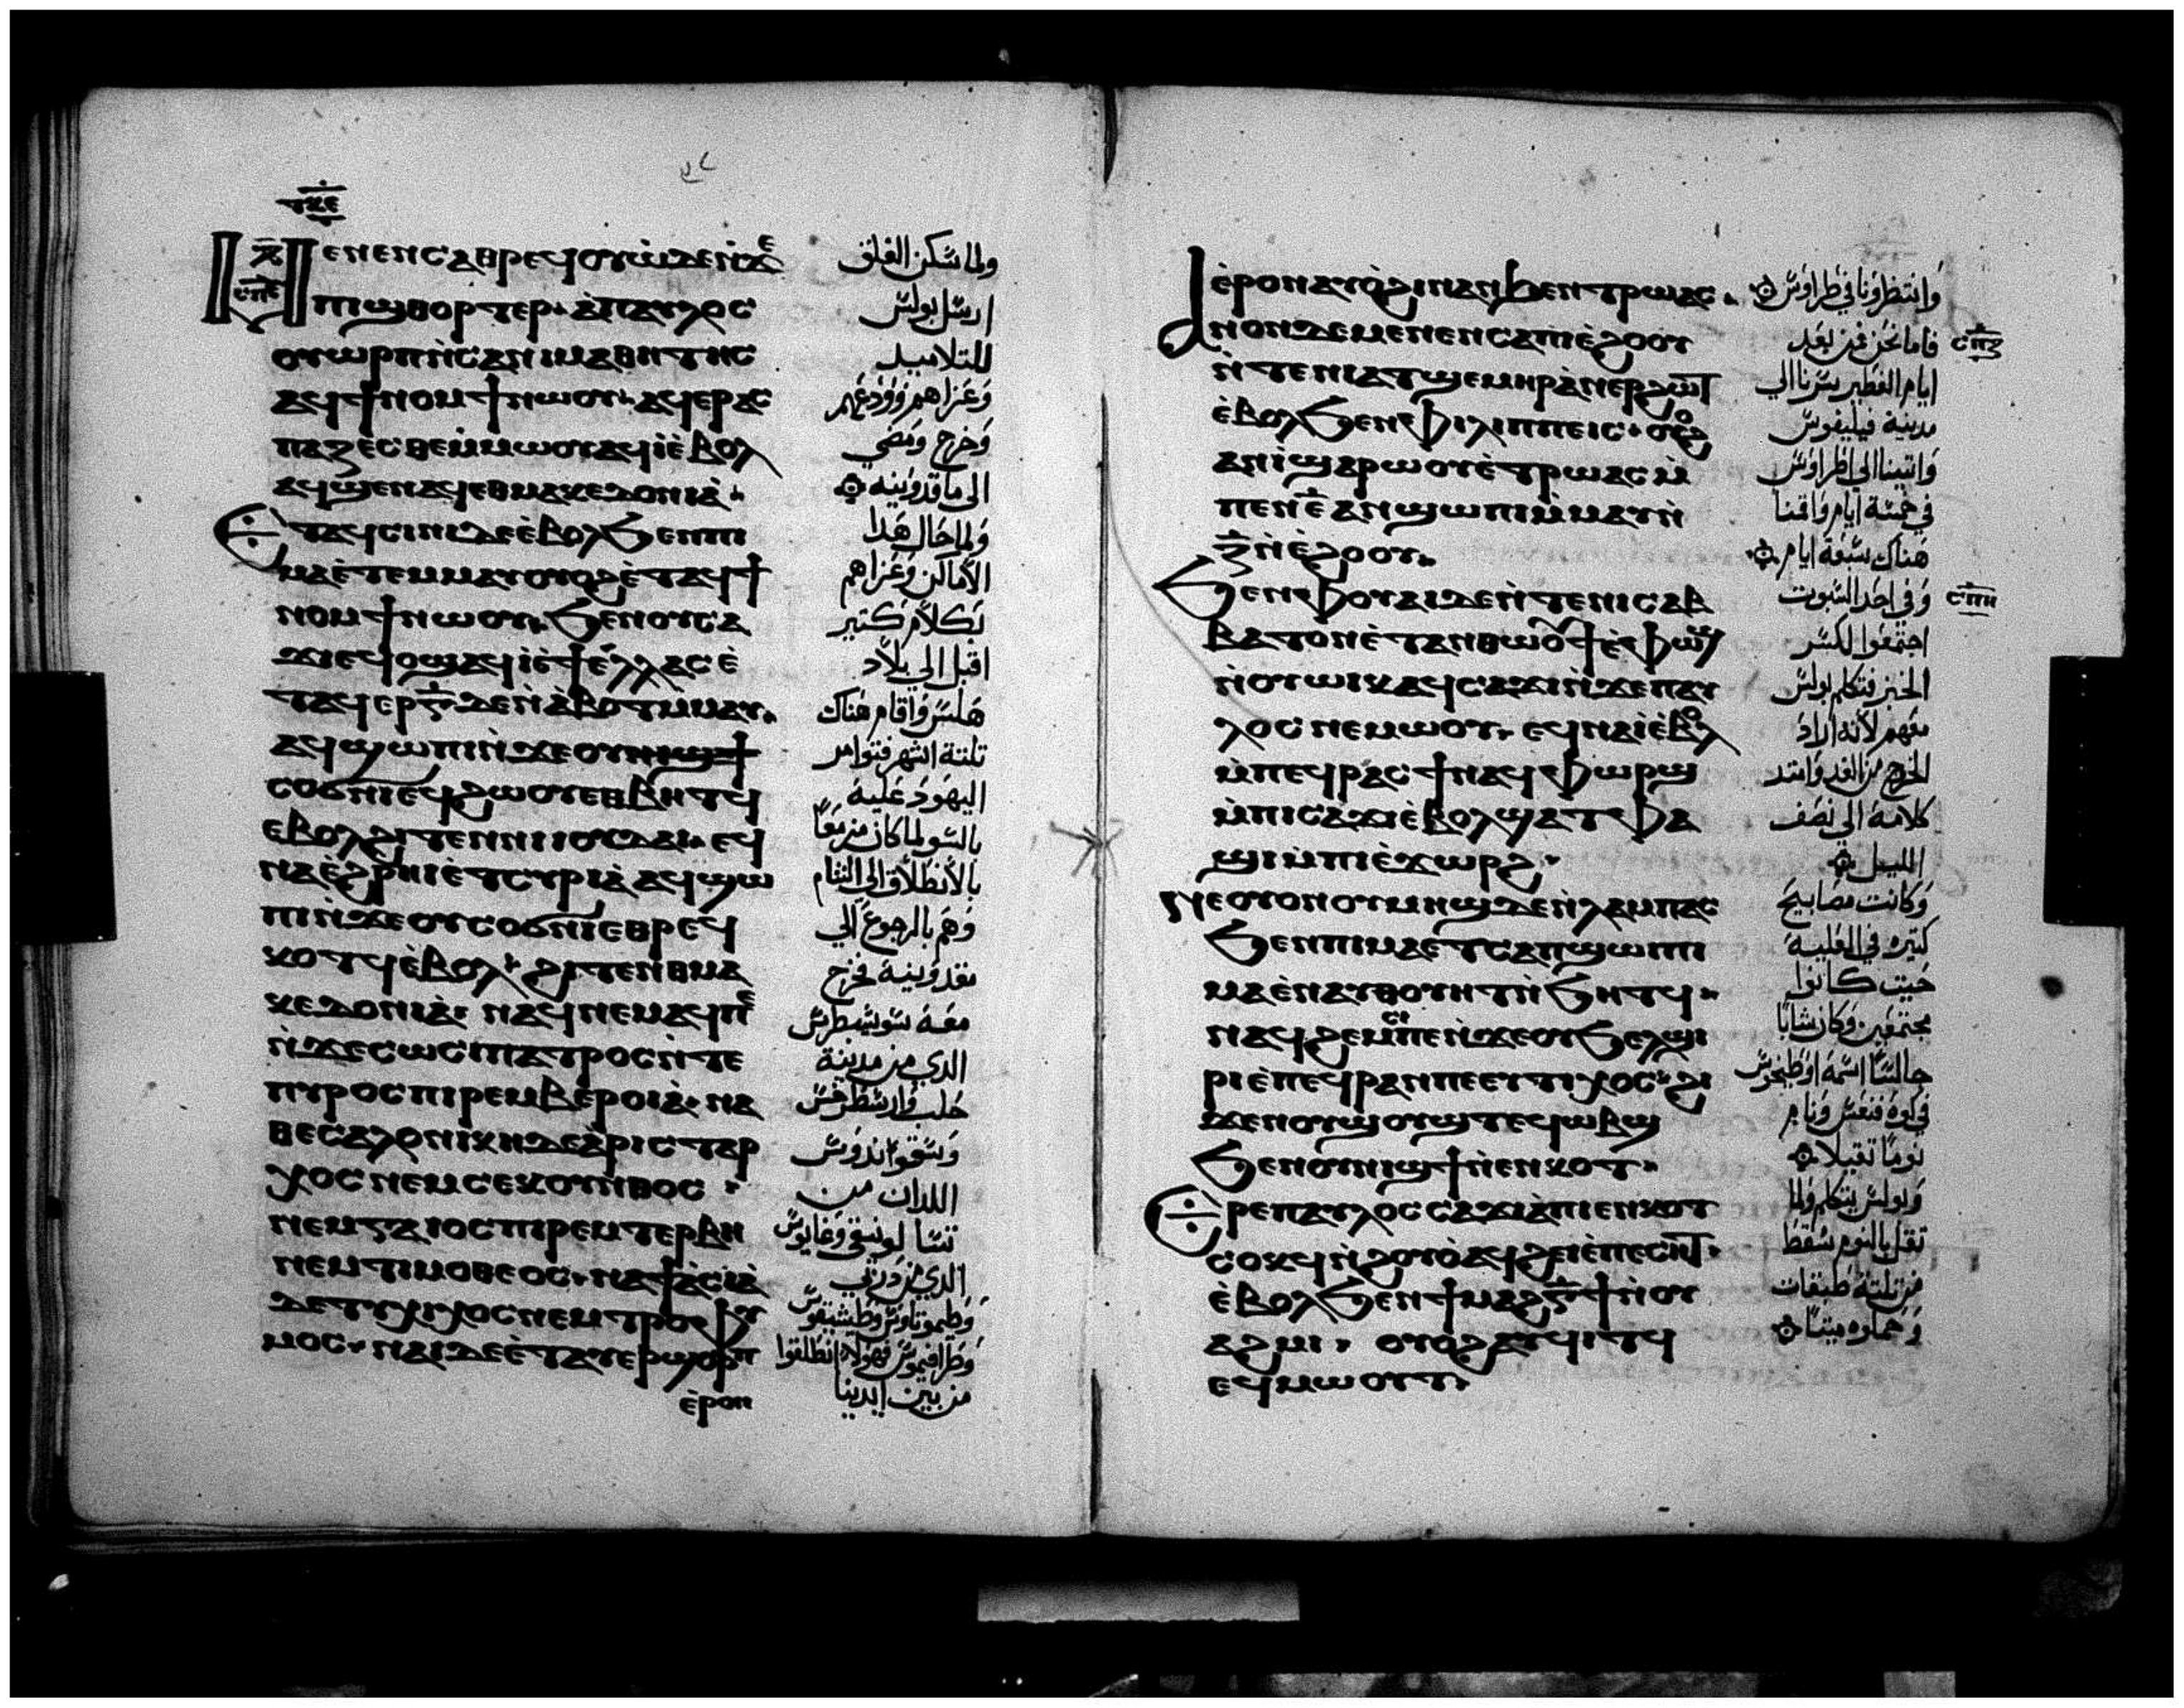 ⲧⲕⲉ
ⲙⲉⲛⲉⲛⲥⲁⲑⲣⲉϥⲟⲩⲱ̀ⲇⲉⲛ̀ϫⲉ
ⲡⲓϣⲑⲟⲣⲧⲉⲣ· ⲁ̀ⲡⲁⲩⲗⲟⲥ
ⲟⲩⲱⲣⲡⲛ̀ⲥⲁⲛⲓⲙⲁⲑⲏⲧⲏⲥ
ⲁϥϯⲛⲟⲙϯⲛⲱⲟⲩ· ⲁϥⲉⲣⲁⲥ
ⲡⲁⲍⲉⲥⲑⲉⲙ̀ⲙⲱⲟⲩⲁϥⲓ̀ⲉ̀ⲃⲟⲗ
ⲁϥϣⲉⲛⲁϥⲉⲑⲙⲁⲕⲉⲇⲟⲛⲓⲁ̀·
ⲉⲧⲁϥⲥⲓⲛⲓⲇⲉⲉ̀ⲃⲟⲗϧⲉⲛⲡⲓ
ⲙⲁⲉ̀ⲧⲉⲙⲙⲁⲩⲟⲩⲟϩⲉ̀ⲧⲁϥϯ
ⲛⲟⲙϯⲛⲱⲟⲩ· ϧⲉⲛⲟⲩⲥⲁ
ϫⲓⲉϥⲟϣⲁϥⲓ̀ⲉ̀ϯⲉⲗⲗⲁⲥⲉ̀
ⲧⲁϥⲉⲣⲅ̅ⲇⲉⲛ̀ⲁ̀ⲃⲟⲧⲙⲙⲁⲩ·
ⲁϥϣⲱⲡⲓⲛ̀ϫⲉⲟⲩⲛⲓϣϯ
ⲥⲟϭⲛⲓⲉϥϩⲱⲟⲩⲉⲑⲃⲏⲧϥ
ⲉⲃⲟⲗϩⲓⲧⲉⲛⲛⲓⲓⲟⲩⲇⲁⲓ· ⲉϥ
ⲛⲁⲉ̀ϩⲣⲏⲓⲉ̀ⲧⲥⲩⲣⲓⲁ̀ⲁϥϣⲱ
ⲡⲓⲛ̀ϫⲉⲟⲩⲥⲟϭⲛⲓⲉⲑⲣⲉϥ
ⲕⲟⲧϥⲉ̀ⲃⲟⲗ· ϩⲓⲧⲉⲛⲑⲙⲁ
ⲕⲉⲇⲟⲛⲓⲁ̀· ⲛⲁϥⲛⲉⲙⲁϥⲡⲉ
ⲛ̀ϫⲉⲥⲱⲥⲓⲡⲁⲧⲣⲟⲥⲛ̀ⲧⲉ
ⲡⲩⲣⲟⲥⲡⲓⲣⲉⲙⲃⲉⲣⲟⲓⲁ̀· ⲛⲁ
ⲑⲉⲥⲁⲗⲟⲛⲓⲕⲏⲇⲉⲁ̀ⲣⲓⲥⲧⲁⲣ
ⲭⲟⲥⲛⲉⲙⲥⲉⲕⲟⲩⲛⲇⲟⲥ·
ⲛⲉⲙⲅⲁⲓⲟⲥⲡⲓⲣⲉⲙⲧⲉⲣⲃⲏ
ⲛⲉⲙⲧⲓⲙⲟⲑⲉⲟⲥ· ⲛⲁϯⲁⲥⲓⲁ̀
ⲇⲉⲧⲩⲭⲓⲕⲟⲥⲛⲉⲙⲧⲣⲟⲫⲩ
ⲙⲟⲥ· ⲛⲁⲓⲇⲉⲉ̀ⲧⲁⲩⲉⲣϣⲟⲣⲡ
ⲉ̀ⲣⲟⲛ
ولما سكن القلق
ارسل بولس
للتلاميد
وعزاهم وودعهم
وخرج ومضي
الى ماقدونيه
ولما جال هدا
الأماكن وعزاهم
بكلام كتير
اقبل الي بلاد
هلس واقام هناك
تلتة اشهر فتوامر
اليهود عليه
بالسو لما كان مزمعا
بالانطلاق الي الشام
وهم بالرجوع الي
مقدونية فخرج
معه سوسيبطرس
الدي من مدينة
حلب وارسطرخس
وسقوندوس
اللدان من
تسالونيقي وغايوس
الدي من دربي
وطيموتاوس وطيشيقوس
وطرافيموس فهولاء انطلقوا
من بين ايدينا
ⲉ̀ⲣⲟⲛⲁⲩⲟ̀ϩⲓⲙⲁⲛϧⲉⲛⲧⲣⲱⲁⲥ·
ⲁⲛⲟⲛⲇⲉⲙⲉⲛⲉⲛⲥⲁⲡⲓⲉ̀ϩⲟⲟⲩ
ⲛ̀ⲧⲉⲛⲓⲁⲧϣⲉⲙⲏⲣⲁⲛⲉⲣϩⲱⲧ
ⲉ̀ⲃⲟⲗϧⲉⲛⲫⲓⲗⲓⲡⲡⲉⲓⲥ· ⲟⲩⲟϩ
ⲁⲛⲓ̀ϣⲁⲣⲱⲟⲩⲉ̀ⲧⲣⲱⲁⲥⲙ̀
ⲡⲉⲛⲉ̅ⲁⲛϣⲱⲡⲓⲙ̀ⲙⲁⲩⲛ̀
ⲍ̅ⲛ̀ⲉ̀ϩⲟⲟⲩ·
ϧⲉⲛⲫⲟⲩⲁⲓⲇⲉⲛ̀ⲧⲉⲛⲓⲥⲁⲃ
ⲃⲁⲧⲟⲛⲉ̀ⲧⲁⲛⲑⲱⲟⲩϯⲉ̀ⲫⲱϣ
ⲛ̀ⲟⲩⲱⲓⲕⲁϥⲥⲁϫⲓⲛ̀ϫⲉⲡⲁⲩ
ⲗⲟⲥⲛⲉⲙⲱⲟⲩ· ⲉϥⲛⲁⲓ̀ⲉ̀ⲃⲟⲗ
ⲙ̀ⲡⲉϥⲣⲁⲥϯⲛⲁϥⲫⲱⲣϣ
ⲙ̀ⲡⲓⲥⲁϫⲓⲉ̀ⲃⲟⲗϣⲁⲧⲫⲁ
ϣⲓⲙ̀ⲡⲓⲉ̀ϫⲱⲣϩ·
ⲛⲉⲟⲩⲟⲛⲟⲩⲙⲏϣⲇⲉⲛ̀ⲗⲁⲙⲡⲁⲥ
ϧⲉⲛⲡⲓⲙⲁⲉⲧⲥⲁⲡϣⲱⲓ
ⲙⲁⲉ̀ⲛⲁⲩⲑⲟⲩⲏⲧⲛ̀ϧⲏⲧϥ·
ⲛⲁϥϩⲉⲙⲥⲓⲡⲉⲛ̀ϫⲉⲟⲩϧⲉⲗϣⲓ
ⲣⲓⲉ̀ⲡⲉϥⲣⲁⲛⲡⲉⲉⲩⲧⲓⲭⲟⲥ· ϩⲓ
ϫⲉⲛⲟⲩϣⲟⲩϣⲧⲉϥⲱⲃϣ
ϧⲉⲛⲟⲩⲛⲓϣϯⲛ̀ⲉⲛⲕⲟⲧ·
ⲉⲣⲉⲡⲁⲩⲗⲟⲥⲥⲁϫⲓⲁ̀ⲡⲓⲉⲛⲕⲟⲧ
ⲥⲟⲕϥⲛ̀ϩⲟⲩⲟ̀ⲁϥϩⲉⲓⲉ̀ⲡⲉⲥⲏⲧ·
ⲉ̀ⲃⲟⲗϧⲉⲛϯⲙⲁϩⲅ̅ϯⲛ̀ⲟⲩ
ⲁϩⲙⲓ· ⲟⲩⲟϩⲁⲩϥⲓⲧϥ
ⲉϥⲙⲱⲟⲩⲧ·
وانتظرونا في طراوس
فاما نحن فمن بعد
ايام الفطير سرنا الي
مدينة فيليفوس
واتينا الي اطراوس
في خمسة ايام واقمنا
هناك سبعة ايام
وفي احد السبوت
اجتمعوا لكسر
الخبز فتكلم بولس
معهم لأنه اراد
الخروج من الغد وامتد
كلامه الي نصف
الليل
وكانت مصابيح
كتيره في العليه
حيت كانوا
مجتمعين وكان شابا
جالسا اسمه اوطيخوس
في كوه فنعس ونام
نوما تقيلا
وبولس يتكلم ولما
تقل بالنوم سقط
من تلتة طبقات
وحملوه ميتا
ⲥⲡⲍ
ⲥⲡⲏ